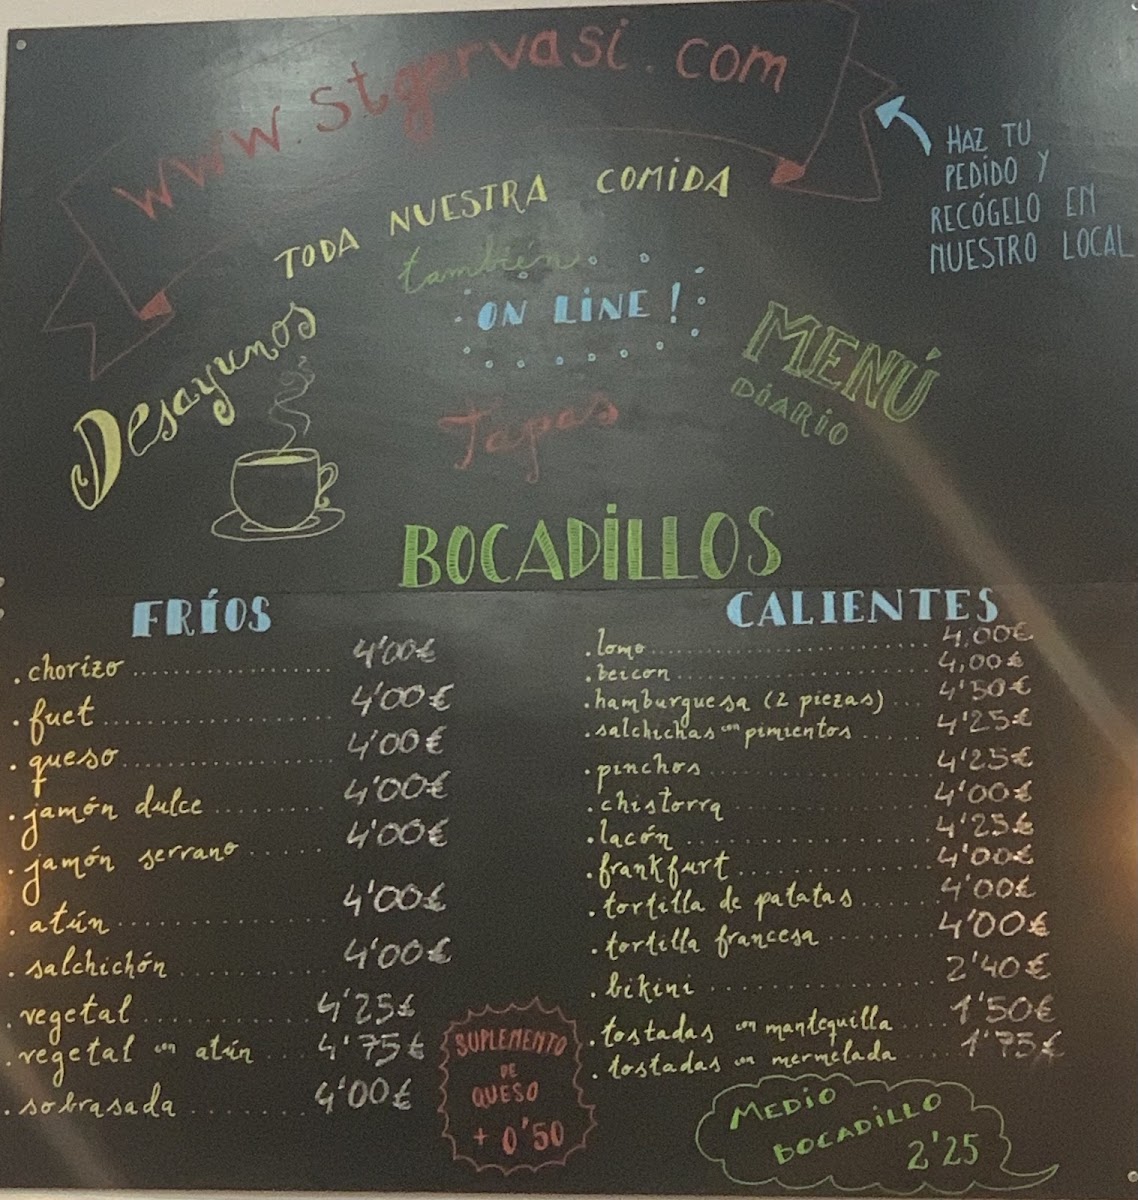 www.Stgervasi.com
HAZ TU
PEDIDO Y
RECÓGELO EN
NUESTRO LOCAL
TODA NUESTRA COMIDA
también
ON LINE!
Desayunos
Tapas
MENÚ
DIARIO
BOCADILLOS
FRÍOS
. chorizo .................... 4'00€
. fuet .................... 4'00€
. queso .................... 4'00€
. jamón dulce .......... 4'00€
. jamón serrano ...... 4'00€
. atún .................... 4'00€
. salchichón ............... 4'00€
. vegetal .................... 4'25€
. vegetal con atún .... 4'75€
. sobrasada ........ 4'00€
SUPLEMENTO
DE
QUESO
+ 0'50
CALIENTES
. lomo .................... 4,00€
. beicon .................... 4,00€
. hamburguesa (2 piezas) ... 4'50€
. salchichas con pimientos ..... 4'25€
. pinchos .................... 4'25€
. chistorra .................... 4'00€
. lacón .................... 4'25€
. frankfurt .................... 4'00€
. tortilla de patatas ...... 4'00€
. tortilla francesa ........ 4'00€
. bikini .................... 2'40€
. tostadas con mantequilla .... 1'50€
. tostadas con mermelada ..... 1'75€
MEDIO
BOCADILLO
2'25